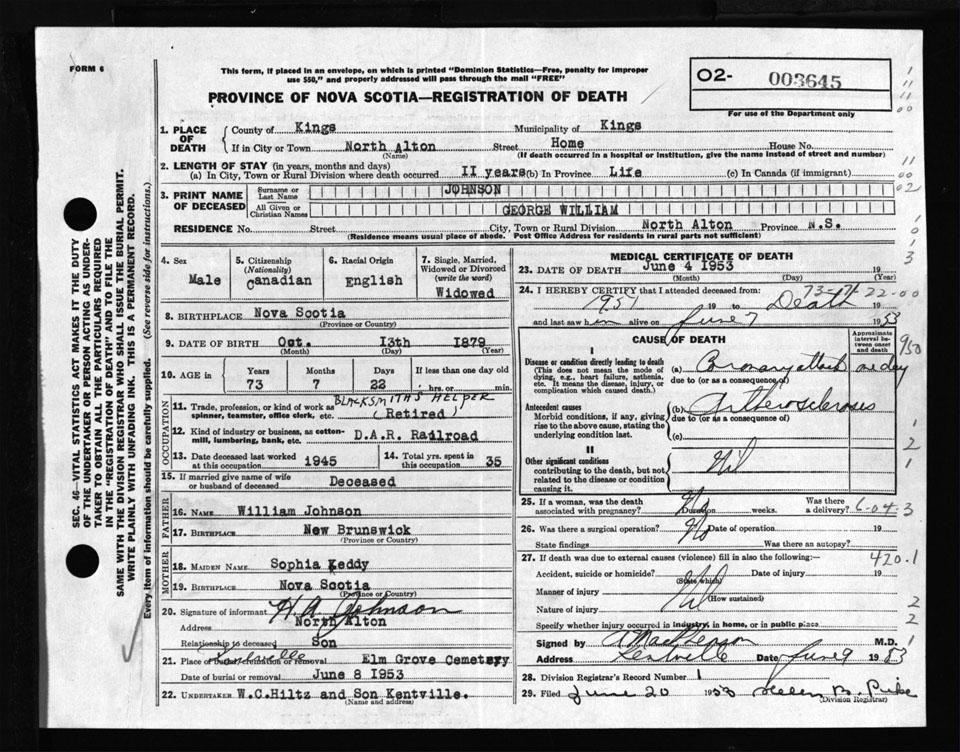 FORM 6
This form, if placed in an envelope, on which is printed "Dominion Statistics—Free, penalty for improper
use $50," and properly addressed will pass through the mail "FREE"
PROVINCE OF NOVA SCOTIA—REGISTRATION OF DEATH
O2- 003645
For use of the Department only
1. PLACE OF DEATH
County of Kings Municipality of Kings
If in City or Town North Alton Street Home House No.
(Name) (If death occurred in a hospital or institution, give the name instead of street and number)
2. LENGTH OF STAY (in years, months and days)
(a) In City, Town or Rural Division where death occurred II years (b) In Province Life (c) In Canada (if immigrant)
3. PRINT NAME OF DECEASED
Surname or Last Name JOHNSON
All Given or Christian Names GEORGE WILLIAM
RESIDENCE No. Street City, Town or Rural Division North Alton Province N.S.
(Residence means usual place of abode. Post Office Address for residents in rural parts not sufficient)
4. Sex
Male
5. Citizenship
(Nationality)
Canadian
6. Racial Origin
English
7. Single, Married,
Widowed or Divorced
(write the word)
Widowed
8. BIRTHPLACE Nova Scotia
(Province or Country)
9. DATE OF BIRTH Oct. I3th 1879
(Month) (Day) (Year)
10. AGE in
Years Months Days If less than one day old
73 7 22 hrs. or min.
OCCUPATION
11. Trade, profession, or kind of work as BLACKSMITHS HELPER
spinner, teamster, office clerk, etc. (Retired)
12. Kind of industry or business, as cotton-
mill, lumbering, bank, etc. D.A.R. Railroad
13. Date deceased last worked
at this occupation 1945
14. Total yrs. spent in
this occupation 35
15. If married give name of wife
or husband of deceased Deceased
FATHER
16. NAME William Johnson
17. BIRTHPLACE New Brunswick
(Province or Country)
MOTHER
18. MAIDEN NAME Sophia Keddy
19. BIRTHPLACE Nova Scotia
(Province or Country)
20. Signature of informant H. A. Johnson
Address North Alton
Relationship to deceased Son
21. Place of burial, cremation or removal Elm Grove Cemetery
Kentville
Date of burial or removal June 8 1953
22. UNDERTAKER W.C.Hiltz and Son Kentville.
(Name and address)
MEDICAL CERTIFICATE OF DEATH
23. DATE OF DEATH June 4 1953 19
(Month) (Day) (Year)
24. I HEREBY CERTIFY that I attended deceased from: 73-7-22-00
1951 19 to Death 19
and last saw him alive on June 7 1953
CAUSE OF DEATH
Approximate
interval be-
tween onset
and death
I
Disease or condition directly leading to death
(This does not mean the mode of
dying, e.g., heart failure, asthenia,
etc. It means the disease, injury, or
complication which caused death.)
(a) Coronary attack one day
due to (or as a consequence of)
Antecedent causes
Morbid conditions, if any, giving
rise to the above cause, stating the
underlying condition last.
(b) Artherosclerosis
due to (or as a consequence of)
(c)
II
Other significant conditions
contributing to the death, but not
related to the disease or condition
causing it.
Nil
25. If a woman, was the death
associated with pregnancy? No Duration weeks. Was there
a delivery? 6-04-3
26. Was there a surgical operation? No Date of operation 19
State findings Was there an autopsy?
27. If death was due to external causes (violence) fill in also the following:—
420.1
Accident, suicide or homicide? Date of injury 19
(State which)
Manner of injury Nil
(How sustained)
Nature of injury
Specify whether injury occurred in industry, in home, or in public place
Signed by A MacPherson M.D.
Address Kentville Date June 9 1953
28. Division Registrar's Record Number 1
29. Filed June 20 1953 Helen B. Pike
(Division Registrar)
SEC. 46—VITAL STATISTICS ACT MAKES IT THE DUTY
OF THE UNDERTAKER OR PERSON ACTING AS UNDER-
TAKER TO OBTAIN ALL THE PARTICULARS REQUIRED
IN THE "REGISTRATION OF DEATH" AND TO FILE THE
SAME WITH THE DIVISION REGISTRAR WHO SHALL ISSUE THE BURIAL PERMIT.
WRITE PLAINLY WITH UNFADING INK. THIS IS A PERMANENT RECORD.
Every item of information should be carefully supplied. (See reverse side for instructions.)